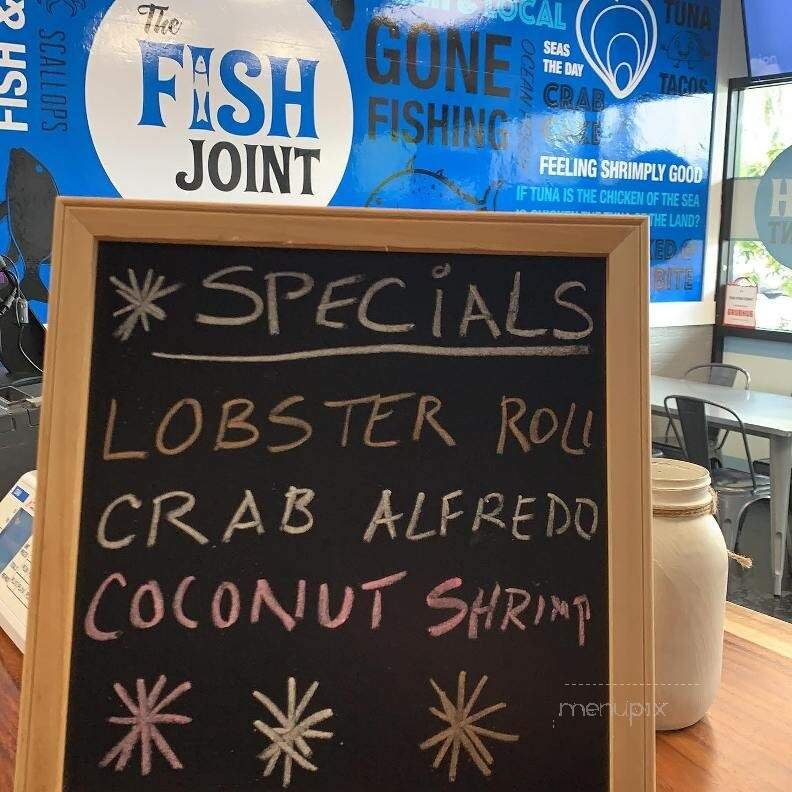 FISH &
SCALLOPS
The
FISH
JOINT
LOCAL
GONE
FISHING
OCEAN
SEAS
THE DAY
CRAB
TUNA
TACOS
FEELING SHRIMPLY GOOD
IF TUNA IS THE CHICKEN OF THE SEA
THE LAND?
BITE
GRUBHUB
* SPECiALS
LOBSTER ROLL
CRAB ALFREDO
COCONUT SHRIMP
menupix